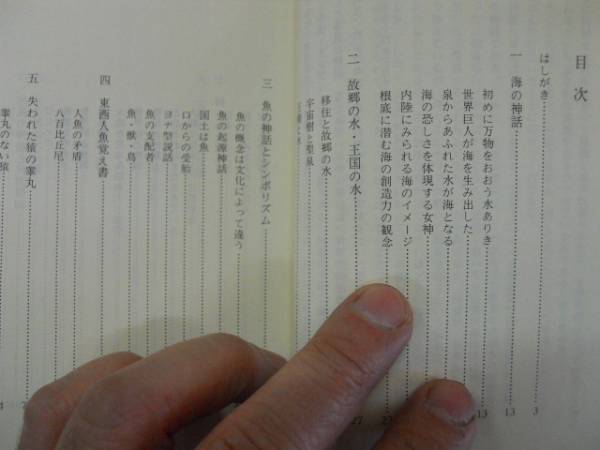 目次
はしがき 3
一 海の神話 13
初めに万物をおおう水ありき 13
世界巨人が海を生み出した
泉からあふれた水が海となる
海の恐しさを体現する女神
内陸にみられる海のイメージ
根底に潜む海の創造力の観念
二 故郷の水・王国の水 27
移住と故郷の水
宇宙樹と聖泉
三 魚の神話とシンボリズム
魚の概念は文化によって違う
魚の起源神話
国土は魚
口からの受胎
ヨナ型説話
魚の支配者
魚・獣・鳥
四 東西人魚覚え書
人魚の矛盾
八百比丘尼
五 失われた猿の睾丸
睾丸のない猿